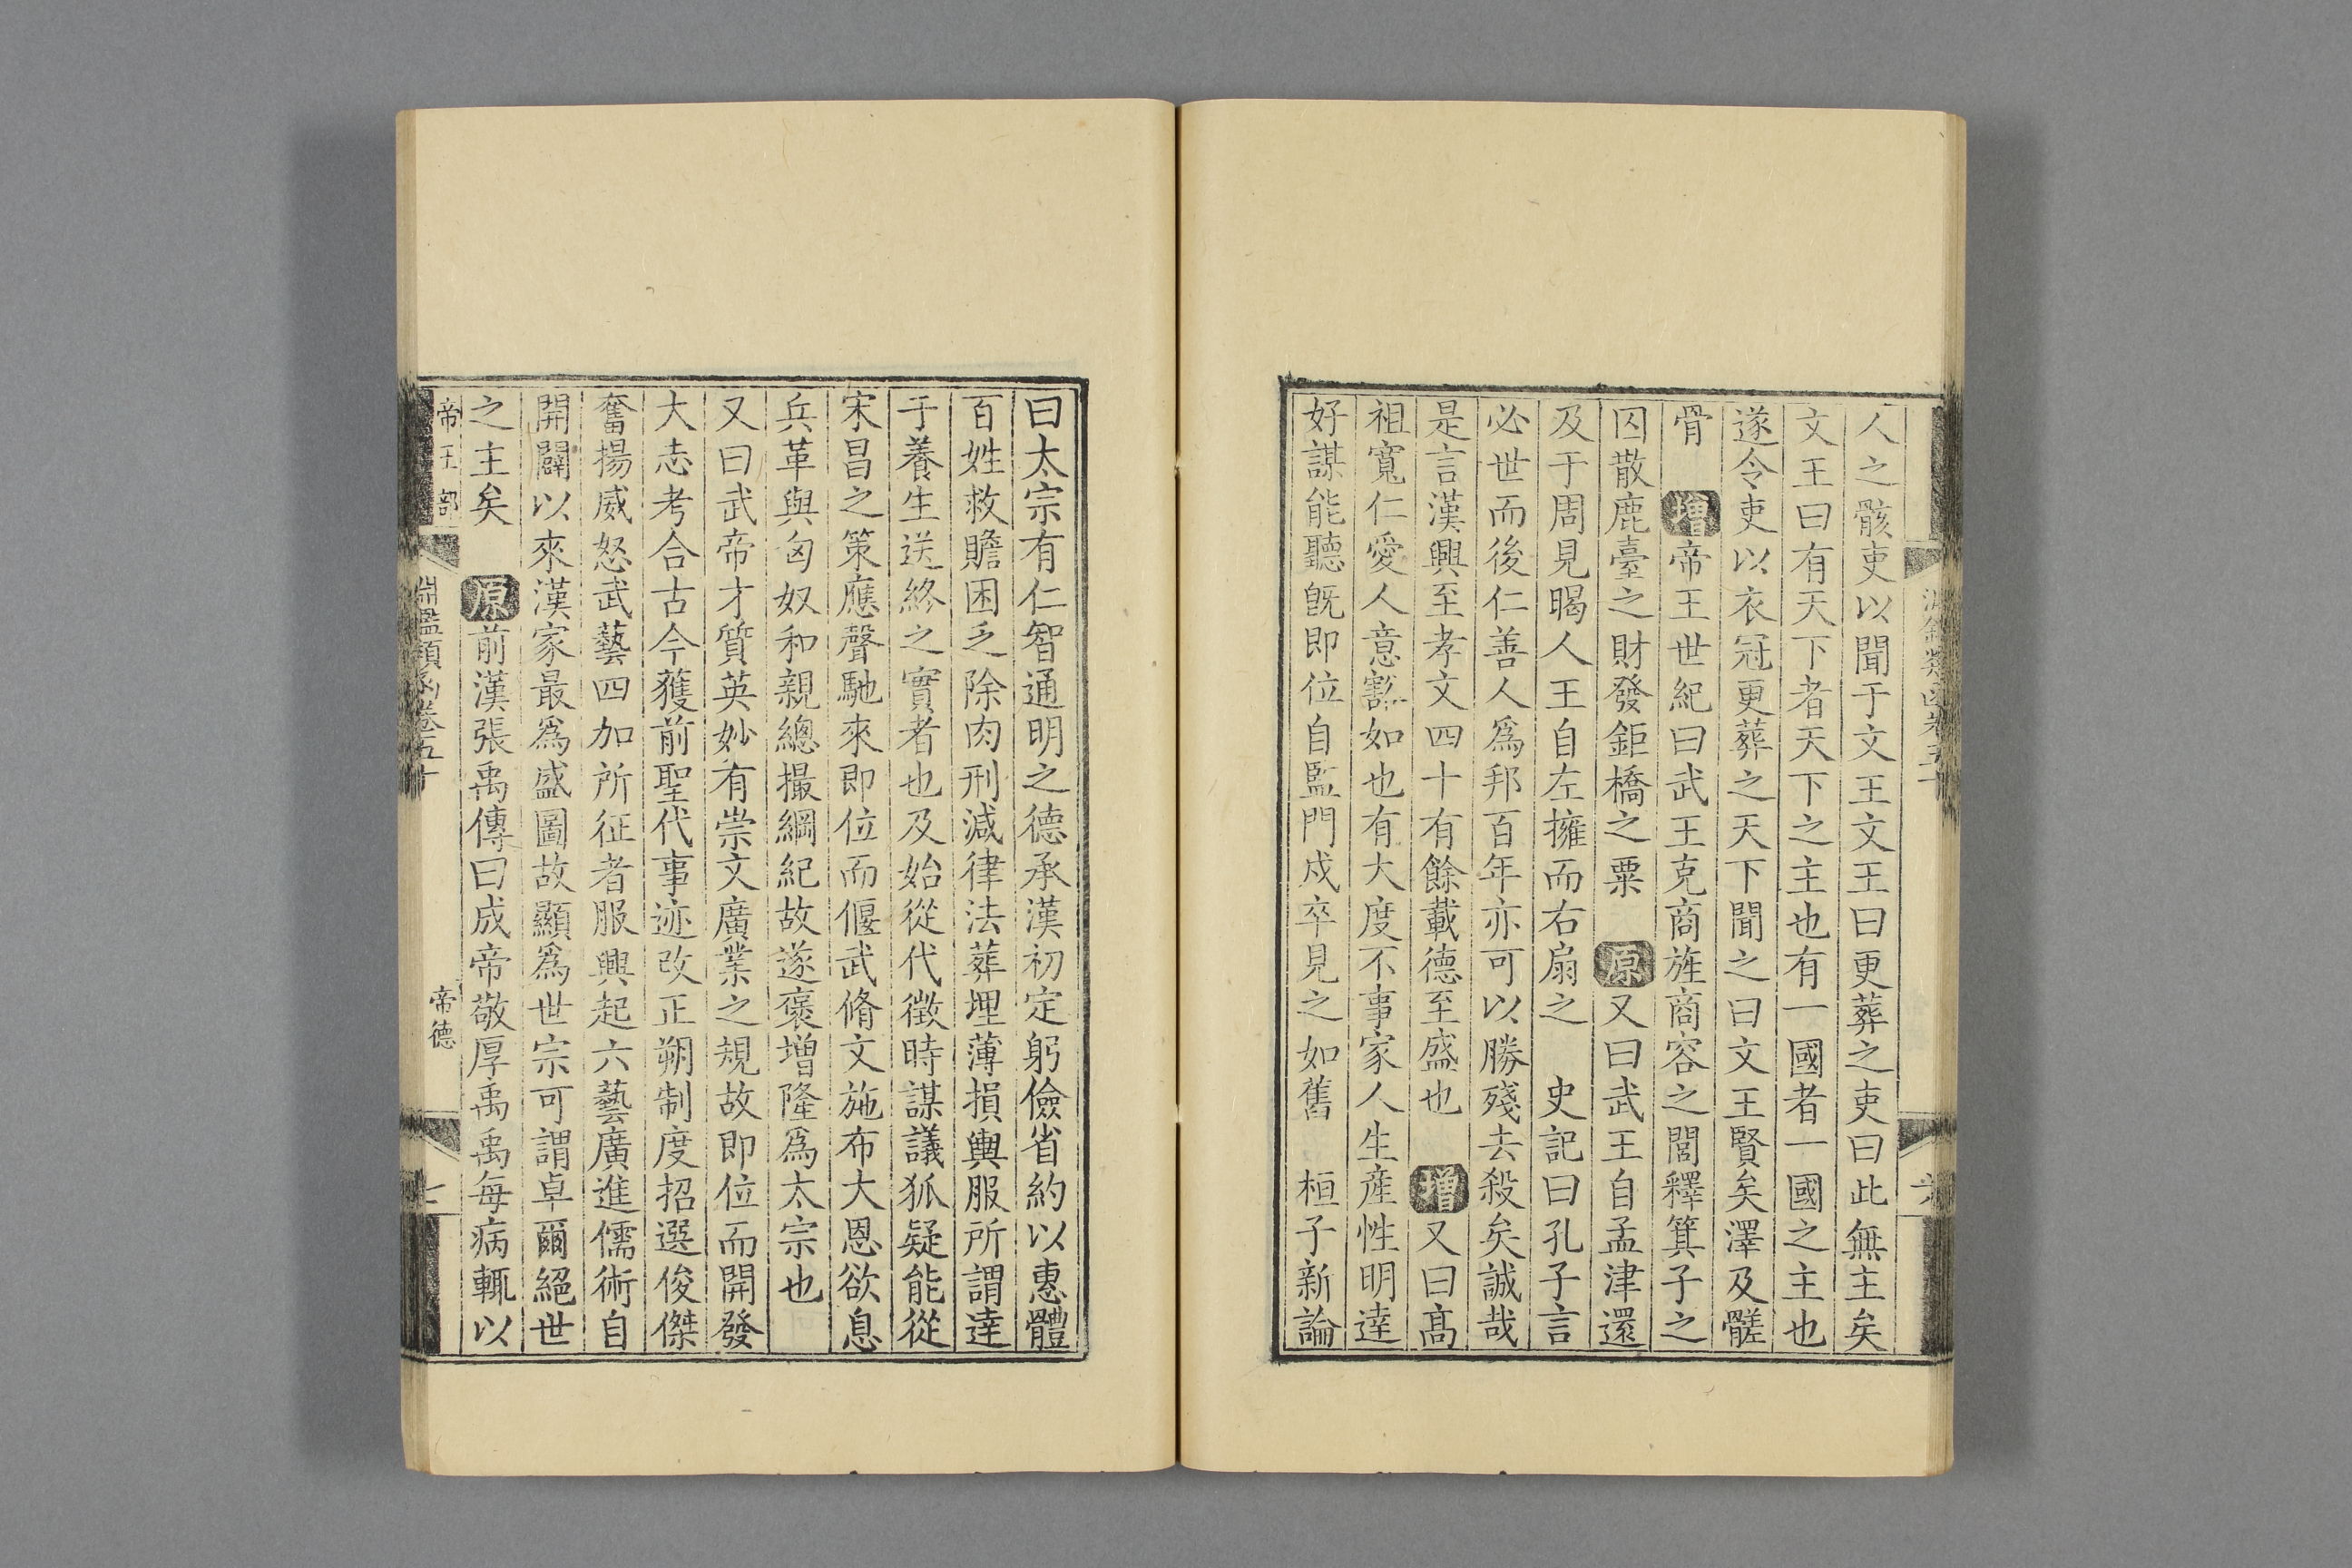 人之骸吏以聞于文王文王曰更葬之吏曰此無主矣
文王曰有天下者天下之主也有一國者一國之主也
遂令吏以衣冠更葬之天下聞之曰文王賢矣澤及髊
骨 增帝王世紀曰武王克商旌商容之閭釋箕子之
囚散鹿臺之財發鉅橋之粟 原又曰武王自孟津還
及于周見暍人王自左擁而右扇之 史記曰孔子言
必世而後仁善人爲邦百年亦可以勝殘去殺矣誠哉
是言漢興至孝文四十有餘載德至盛也 增又曰高
祖寬仁愛人意豁如也有大度不事家人生産性明達
好謀能聽旣即位自監門戍卒見之如舊 桓子新論
曰太宗有仁智通明之德承漢初定躬儉省約以惠體
百姓救贍困乏除肉刑減律法葬埋薄損輿服所謂達
于養生送終之實者也及始從代徵時謀議狐疑能從
宋昌之策應聲馳來即位而偃武脩文施布大恩欲息
兵革與匈奴和親總撮綱紀故遂褒增隆爲太宗也
又曰武帝才質英妙有崇文廣業之規故即位而開發
大志考合古今獲前聖代事迹改正朔制度招選俊傑
奮揚威怒武藝四加所征者服興起六藝廣進儒術自
開闢以來漢家最爲盛圖故顯爲世宗可謂卓爾絕世
之主矣 原前漢張禹傳曰成帝敬厚禹禹每病輒以
帝王部
淵鑑類函卷五十
帝德
七